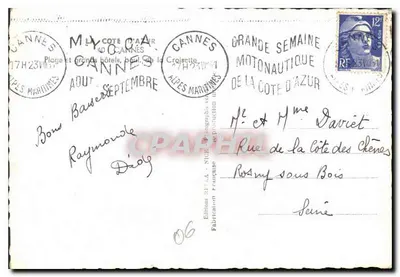 CANNES
ALPES MARITIMES
M.Y.C.C.A.
CANNES
AOUT SEPTEMBRE
CANNES
ALPES MARITIMES
GRANDE SEMAINE
MOTONAUTIQUE
DE LA COTE D'AZUR
12F
RF
LA COTE D'AZUR
CANNES
Plage et grands hôtels, boul. de la Croisette
Bons Baisers
Raymonde
Dédé
Mr et Mme Daviet
Rue de la côte des Chênes
Rosny sous Bois
Seine
CPARAMA
06